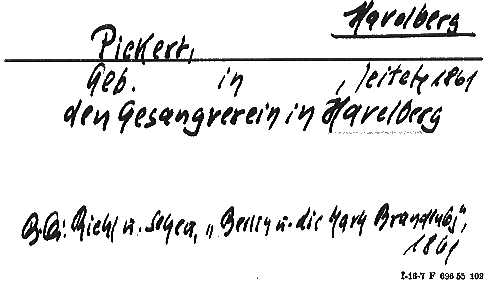 Havelberg
Pickert,
Geb. in , leitete 1861
den Gesangverein in Havelberg
Riehl u. Scheu, „Berlin u. die Mark Brandenbg",
1861
I-16-7 F 696 55 102